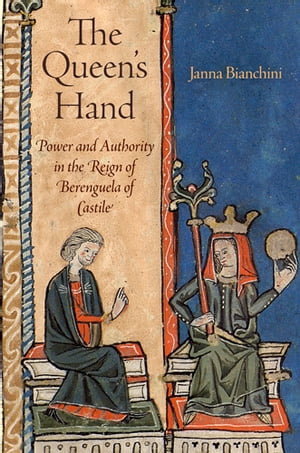 The
Queen's
Hand
Janna Bianchini
Power and Authority
in the Reign of
Berenguela of
Castile